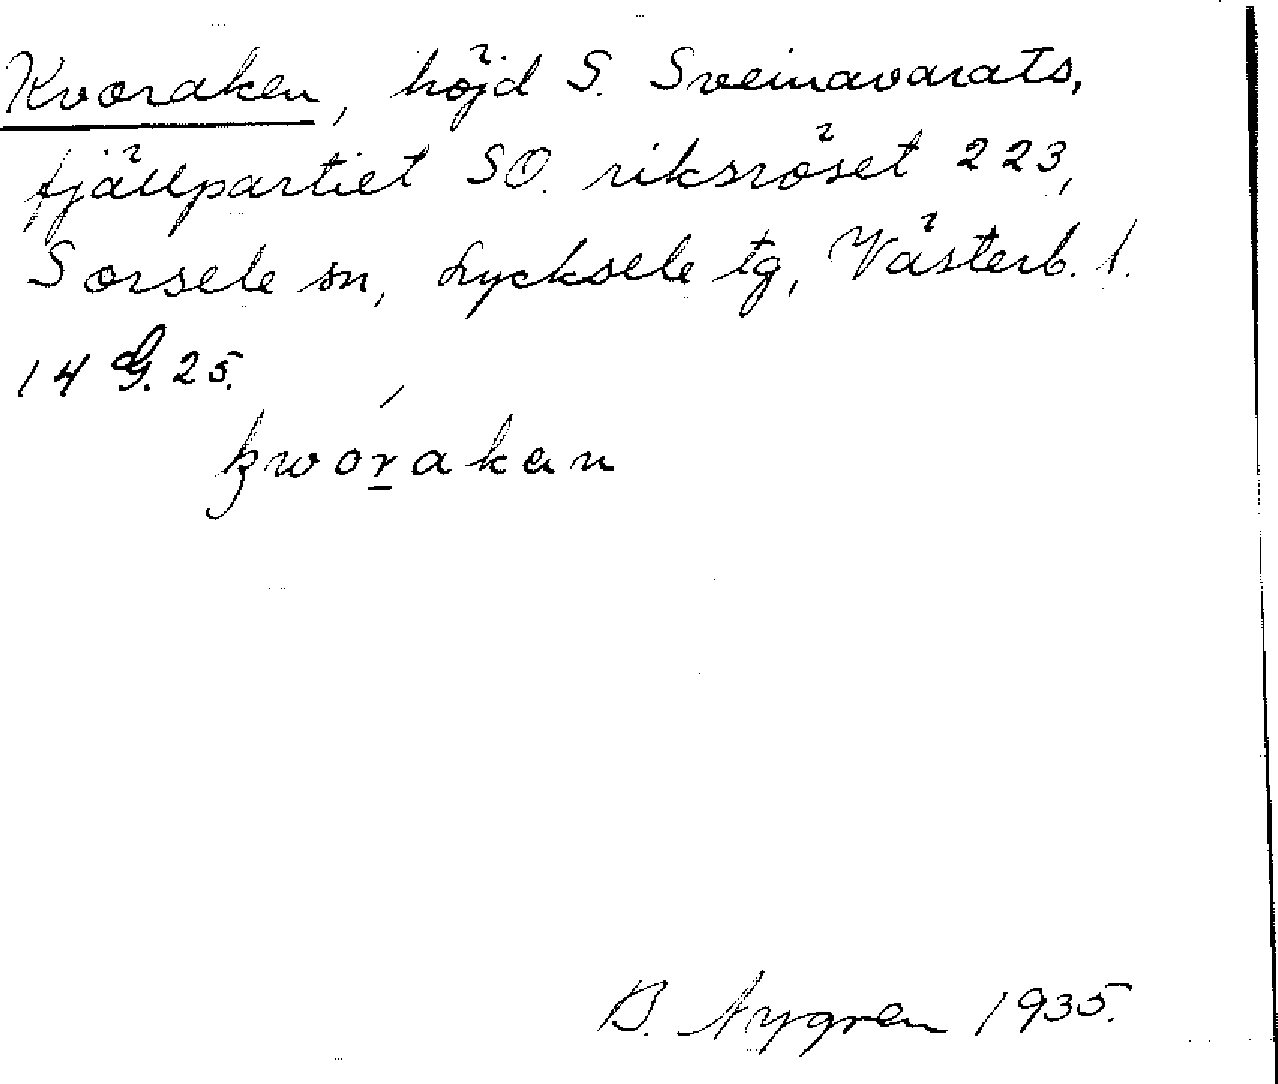 Kvoraken, höjd S. Sveinavarats,
fjällpartiet SO. riksröset 223,
Sorsele sn, Lycksele tg, Västerb. l.
14 G. 25.
kworakan
B. Nygren 1935.